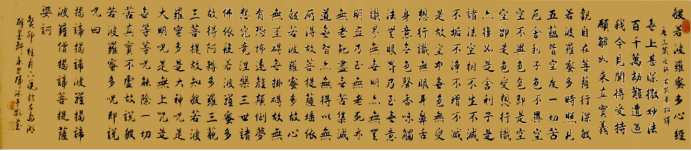 般若波羅蜜多心經
唐三藏法師玄奘奉詔譯
無上甚深微妙法
百千萬劫難遭遇
我今見聞得受持
願解如來真實義
觀自在菩薩行深般
若波羅蜜多時照見
五蘊皆空度一切苦
厄舍利子色不異空
空不異色色即是空
空即是色受想行識
亦復如是舍利子是
諸法空相不生不滅
不垢不淨不增不減
是故空中無色無受
想行識無眼耳鼻舌
身意無色聲香味觸
法無眼界乃至無意
識界無無明亦無無
明盡乃至無老死亦
無老死盡無苦集滅
道無智亦無得以無
所得故菩提薩埵依
般若波羅蜜多故心
無罣礙無罣礙故無
有恐怖遠離顛倒夢
想究竟涅槃三世諸
佛依般若波羅蜜多
故得阿耨多羅三藐
三菩提故知般若波
羅蜜多是大神咒是
大明咒是無上咒是
無等等咒能除一切
苦真實不虛故說般
若波羅蜜多咒即說
咒曰
揭諦揭諦波羅揭諦
波羅僧揭諦菩提薩
婆訶